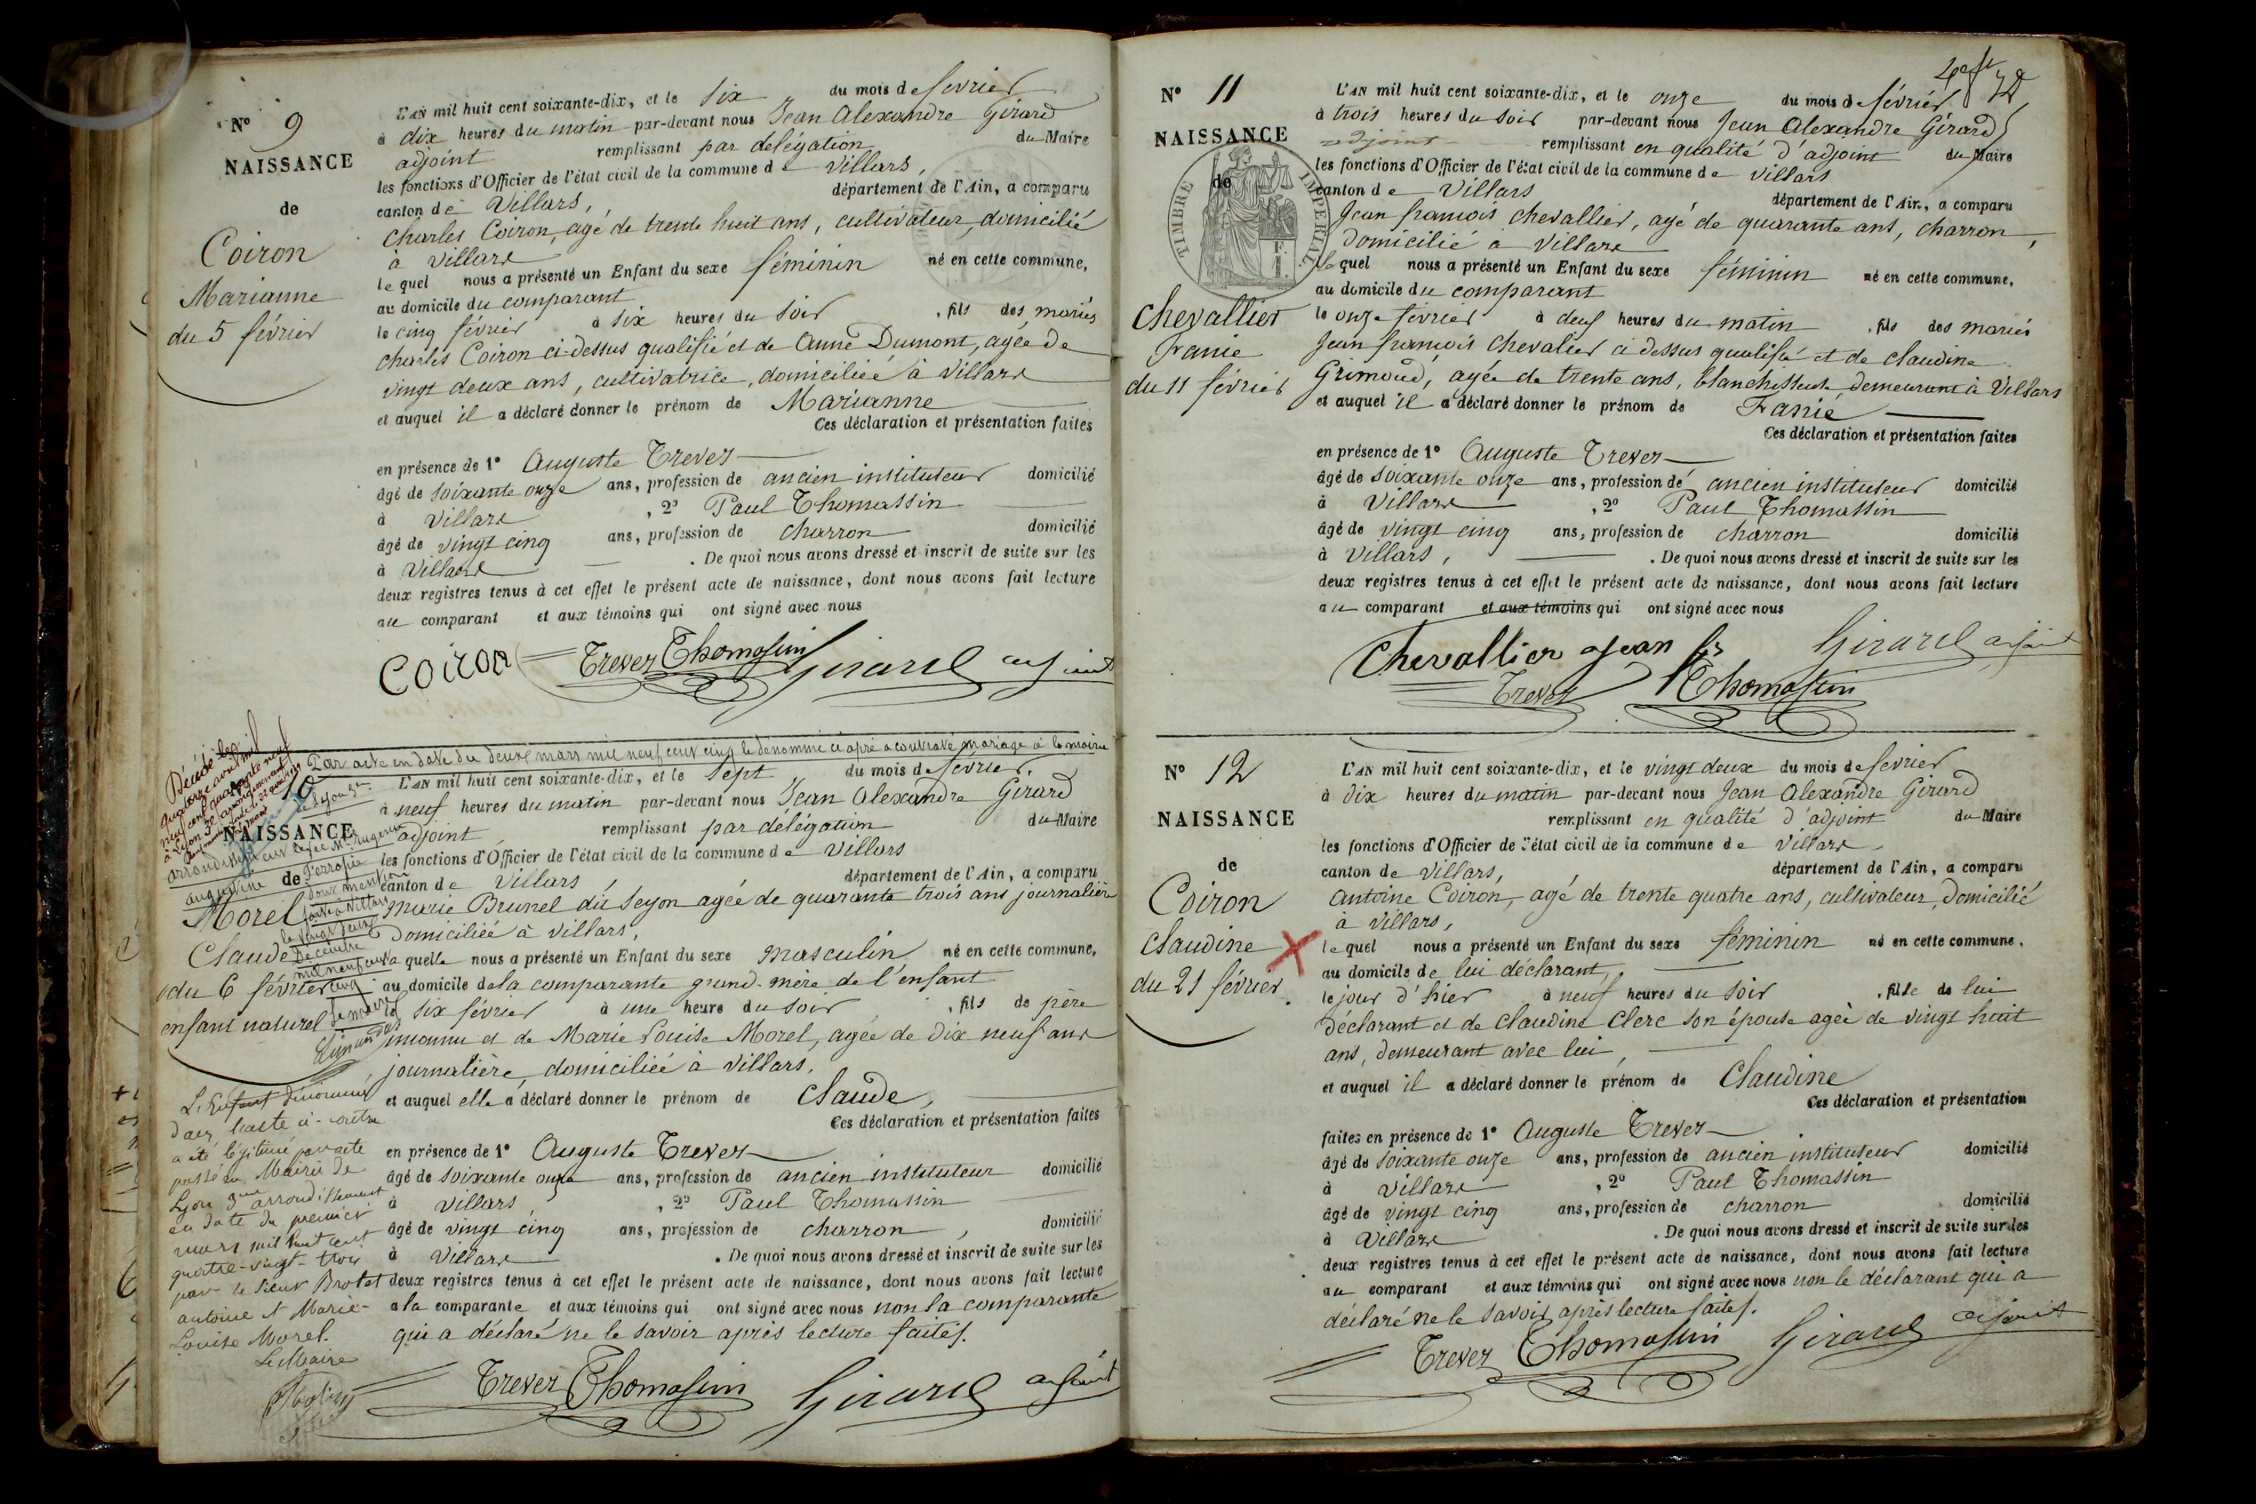 N° 9
NAISSANCE
de
Coiron
Marianne
du 5 février
L'AN mil huit cent soixante-dix, et le six du mois de février
à dix heures du matin par-devant nous Jean Alexandre Girard
adjoint remplissant par délégation du Maire
les fonctions d'Officier de l'état civil de la commune de Villars,
canton de Villars, département de l'Ain, a comparu
Charles Coiron, agé de trente huit ans, cultivateur, domicilié
à Villars
le quel nous a présenté un Enfant du sexe féminin né en cette commune,
au domicile du comparant
le cinq février à six heures du soir, fils des mariés
Charles Coiron ci-dessus qualifié et de Anne Dumont, agée de
vingt deux ans, cultivatrice, domiciliée à Villars
et auquel il a déclaré donner le prénom de Marianne
Ces déclaration et présentation faites
en présence de 1° Auguste Trever
âgé de soixante onze ans, profession de ancien instituteur domicilié
à Villars, 2° Paul Thomassin
âgé de vingt cinq ans, profession de charron domicilié
à Villars. De quoi nous avons dressé et inscrit de suite sur les
deux registres tenus à cet effet le présent acte de naissance, dont nous avons fait lecture
au comparant et aux témoins qui ont signé avec nous
Coiron Trever Thomassin Girard adjoint
Par acte en date du deux mars mil neuf cent cinq le dénommé ci après a contracté mariage à la mairie
de Lyon 3me
arrondissement avec
augustine
doux mention
faite à Villars
le vingt deux
Décembre
mil neuf cent
cinq
Le maire
Décédé le
quatorze avril mil
neuf cent quarante neuf
à Lyon 3e arrondissement
10
NAISSANCE
de
Morel
Claude
du 6 février
enfant naturel
L'AN mil huit cent soixante-dix, et le sept du mois de février,
à neuf heures du matin par-devant nous Jean Alexandre Girard
adjoint remplissant par délégation du Maire
les fonctions d'Officier de l'état civil de la commune de Villars
canton de Villars département de l'Ain, a comparu
Marie Brunel dit Seyon agée de quarante trois ans journalière
domiciliée à Villars,
la quelle nous a présenté un Enfant du sexe masculin né en cette commune,
au domicile de la comparante grand-mère de l'enfant
le six février à une heure du soir, fils de père
inconnu et de Marie Louise Morel, agée de dix neuf ans
journalière, domiciliée à Villars,
et auquel elle a déclaré donner le prénom de Claude,
Ces déclaration et présentation faites
en présence de 1° Auguste Trever
âgé de soixante onze ans, profession de ancien instituteur domicilié
à Villars, 2° Paul Thomassin
âgé de vingt cinq ans, profession de charron, domicilié
à Villars. De quoi nous avons dressé et inscrit de suite sur les
deux registres tenus à cet effet le présent acte de naissance, dont nous avons fait lecture
a la comparante et aux témoins qui ont signé avec nous non la comparante
qui a déclaré ne le savoir après lecture faites.
Trever Thomassin Girard adjoint
L'Enfant dénommé
dans l'acte ci-contre
a été légitimé par acte
passé en Mairie de
Lyon 3me arrondissement
en date du premier
mars mil huit cent
quatre-vingt-trois
par le sieur Brotet
antoine et Marie-
Louise Morel.
Le Maire
N° 11
NAISSANCE
de
TIMBRE IMPERIAL
Chevallier
Franie
du 11 février
L'AN mil huit cent soixante-dix, et le onze du mois de février
à trois heures du soir par-devant nous Jean Alexandre Girard
adjoint remplissant en qualité d'adjoint du Maire
les fonctions d'Officier de l'état civil de la commune de Villars
canton de Villars département de l'Ain, a comparu
Jean françois Chevallier, agé de quarante ans, charron,
domicilié à Villars
le quel nous a présenté un Enfant du sexe féminin né en cette commune,
au domicile du comparant
le onze février à deux heures du matin, fils des mariés
Jean françois Chevalier ci dessus qualifié et de Claudine
Grimoud, agée de trente ans, blanchisseuse demeurant à Villars
et auquel il a déclaré donner le prénom de Franie
Ces déclaration et présentation faites
en présence de 1° Auguste Trever
âgé de soixante onze ans, profession de ancien instituteur domicilié
à Villars, 2° Paul Thomassin
âgé de vingt cinq ans, profession de charron domicilié
à Villars, . De quoi nous avons dressé et inscrit de suite sur les
deux registres tenus à cet effet le présent acte de naissance, dont nous avons fait lecture
au comparant et aux témoins qui ont signé avec nous
Chevallier Jean fs Girard adjoint
Trever Thomassin
N° 12
NAISSANCE
de
Coiron
Claudine
du 21 février.
L'AN mil huit cent soixante-dix, et le vingt deux du mois de février
à dix heures du matin par-devant nous Jean Alexandre Girard
remplissant en qualité d'adjoint du Maire
les fonctions d'Officier de l'état civil de la commune de Villars
canton de Villars, département de l'Ain, a comparu
Antoine Coiron, agé de trente quatre ans, cultivateur, domicilié
à Villars,
le quel nous a présenté un Enfant du sexe féminin né en cette commune,
au domicile de lui déclarant,
le jour d'hier à neuf heures du soir, fille de lui
déclarant et de Claudine Clerc son épouse agée de vingt huit
ans, demeurant avec lui,
et auquel il a déclaré donner le prénom de Claudine
Ces déclaration et présentation
faites en présence de 1° Auguste Trever
âgé de soixante onze ans, profession de ancien instituteur domicilié
à Villars, 2° Paul Thomassin
âgé de vingt cinq ans, profession de charron domicilié
à Villars. De quoi nous avons dressé et inscrit de suite sur les
deux registres tenus à cet effet le présent acte de naissance, dont nous avons fait lecture
au comparant et aux témoins qui ont signé avec nous non le déclarant qui a
déclaré ne le savoir après lecture faites.
Trever Thomassin Girard adjoint